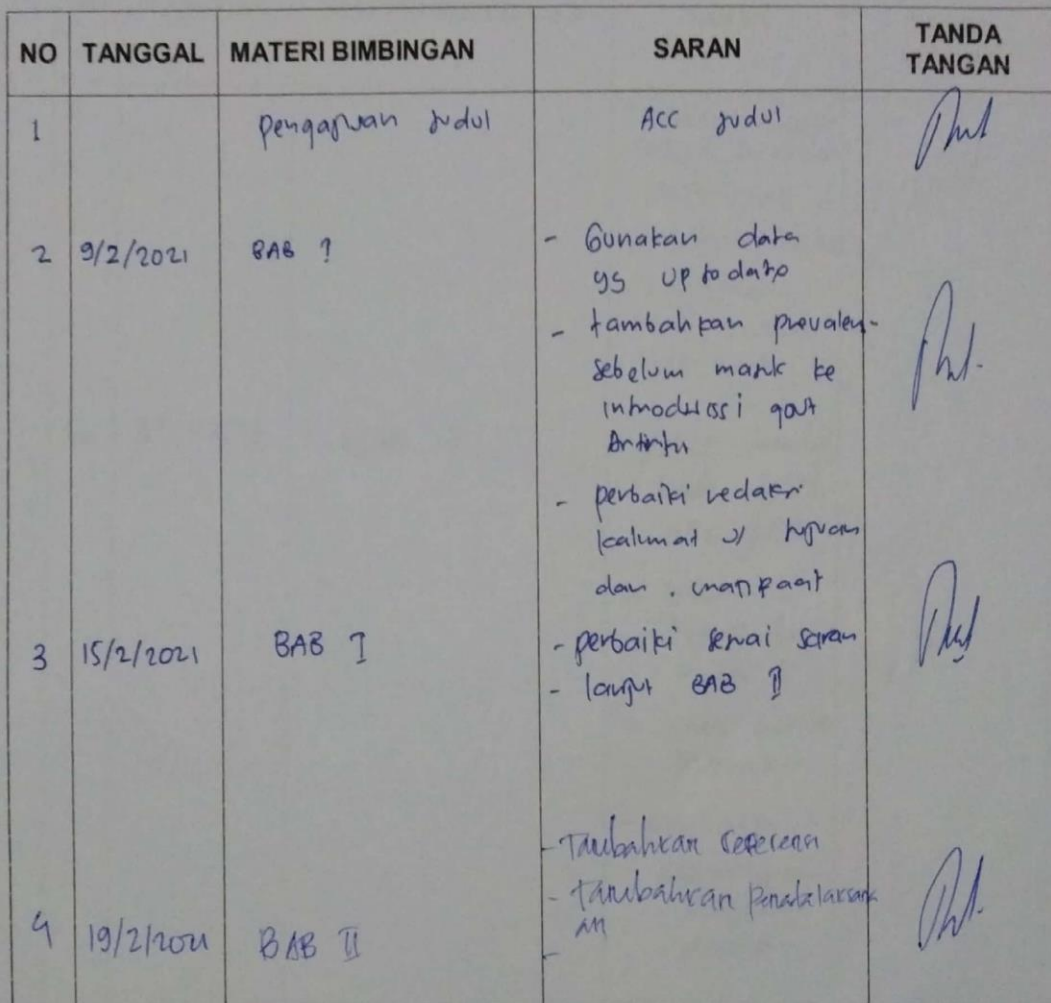 NO TANGGAL MATERI BIMBINGAN SARAN TANDA TANGAN
1 Pengajuan Judul ACC Judul
2 9/2/2021 BAB I - Gunakan data
yg uptodate
- tambahkan prevalen-
sebelum masuk ke
introduksi gout
Artritis
- perbaiki redaksi
kalimat u/ tujuan
dan manfaat
3 15/2/2021 BAB I - perbaiki sesuai saran
- lanjut BAB II
- Tambahkan referensi
- tambahkan Penatalaksana
an
4 19/2/2021 BAB II -